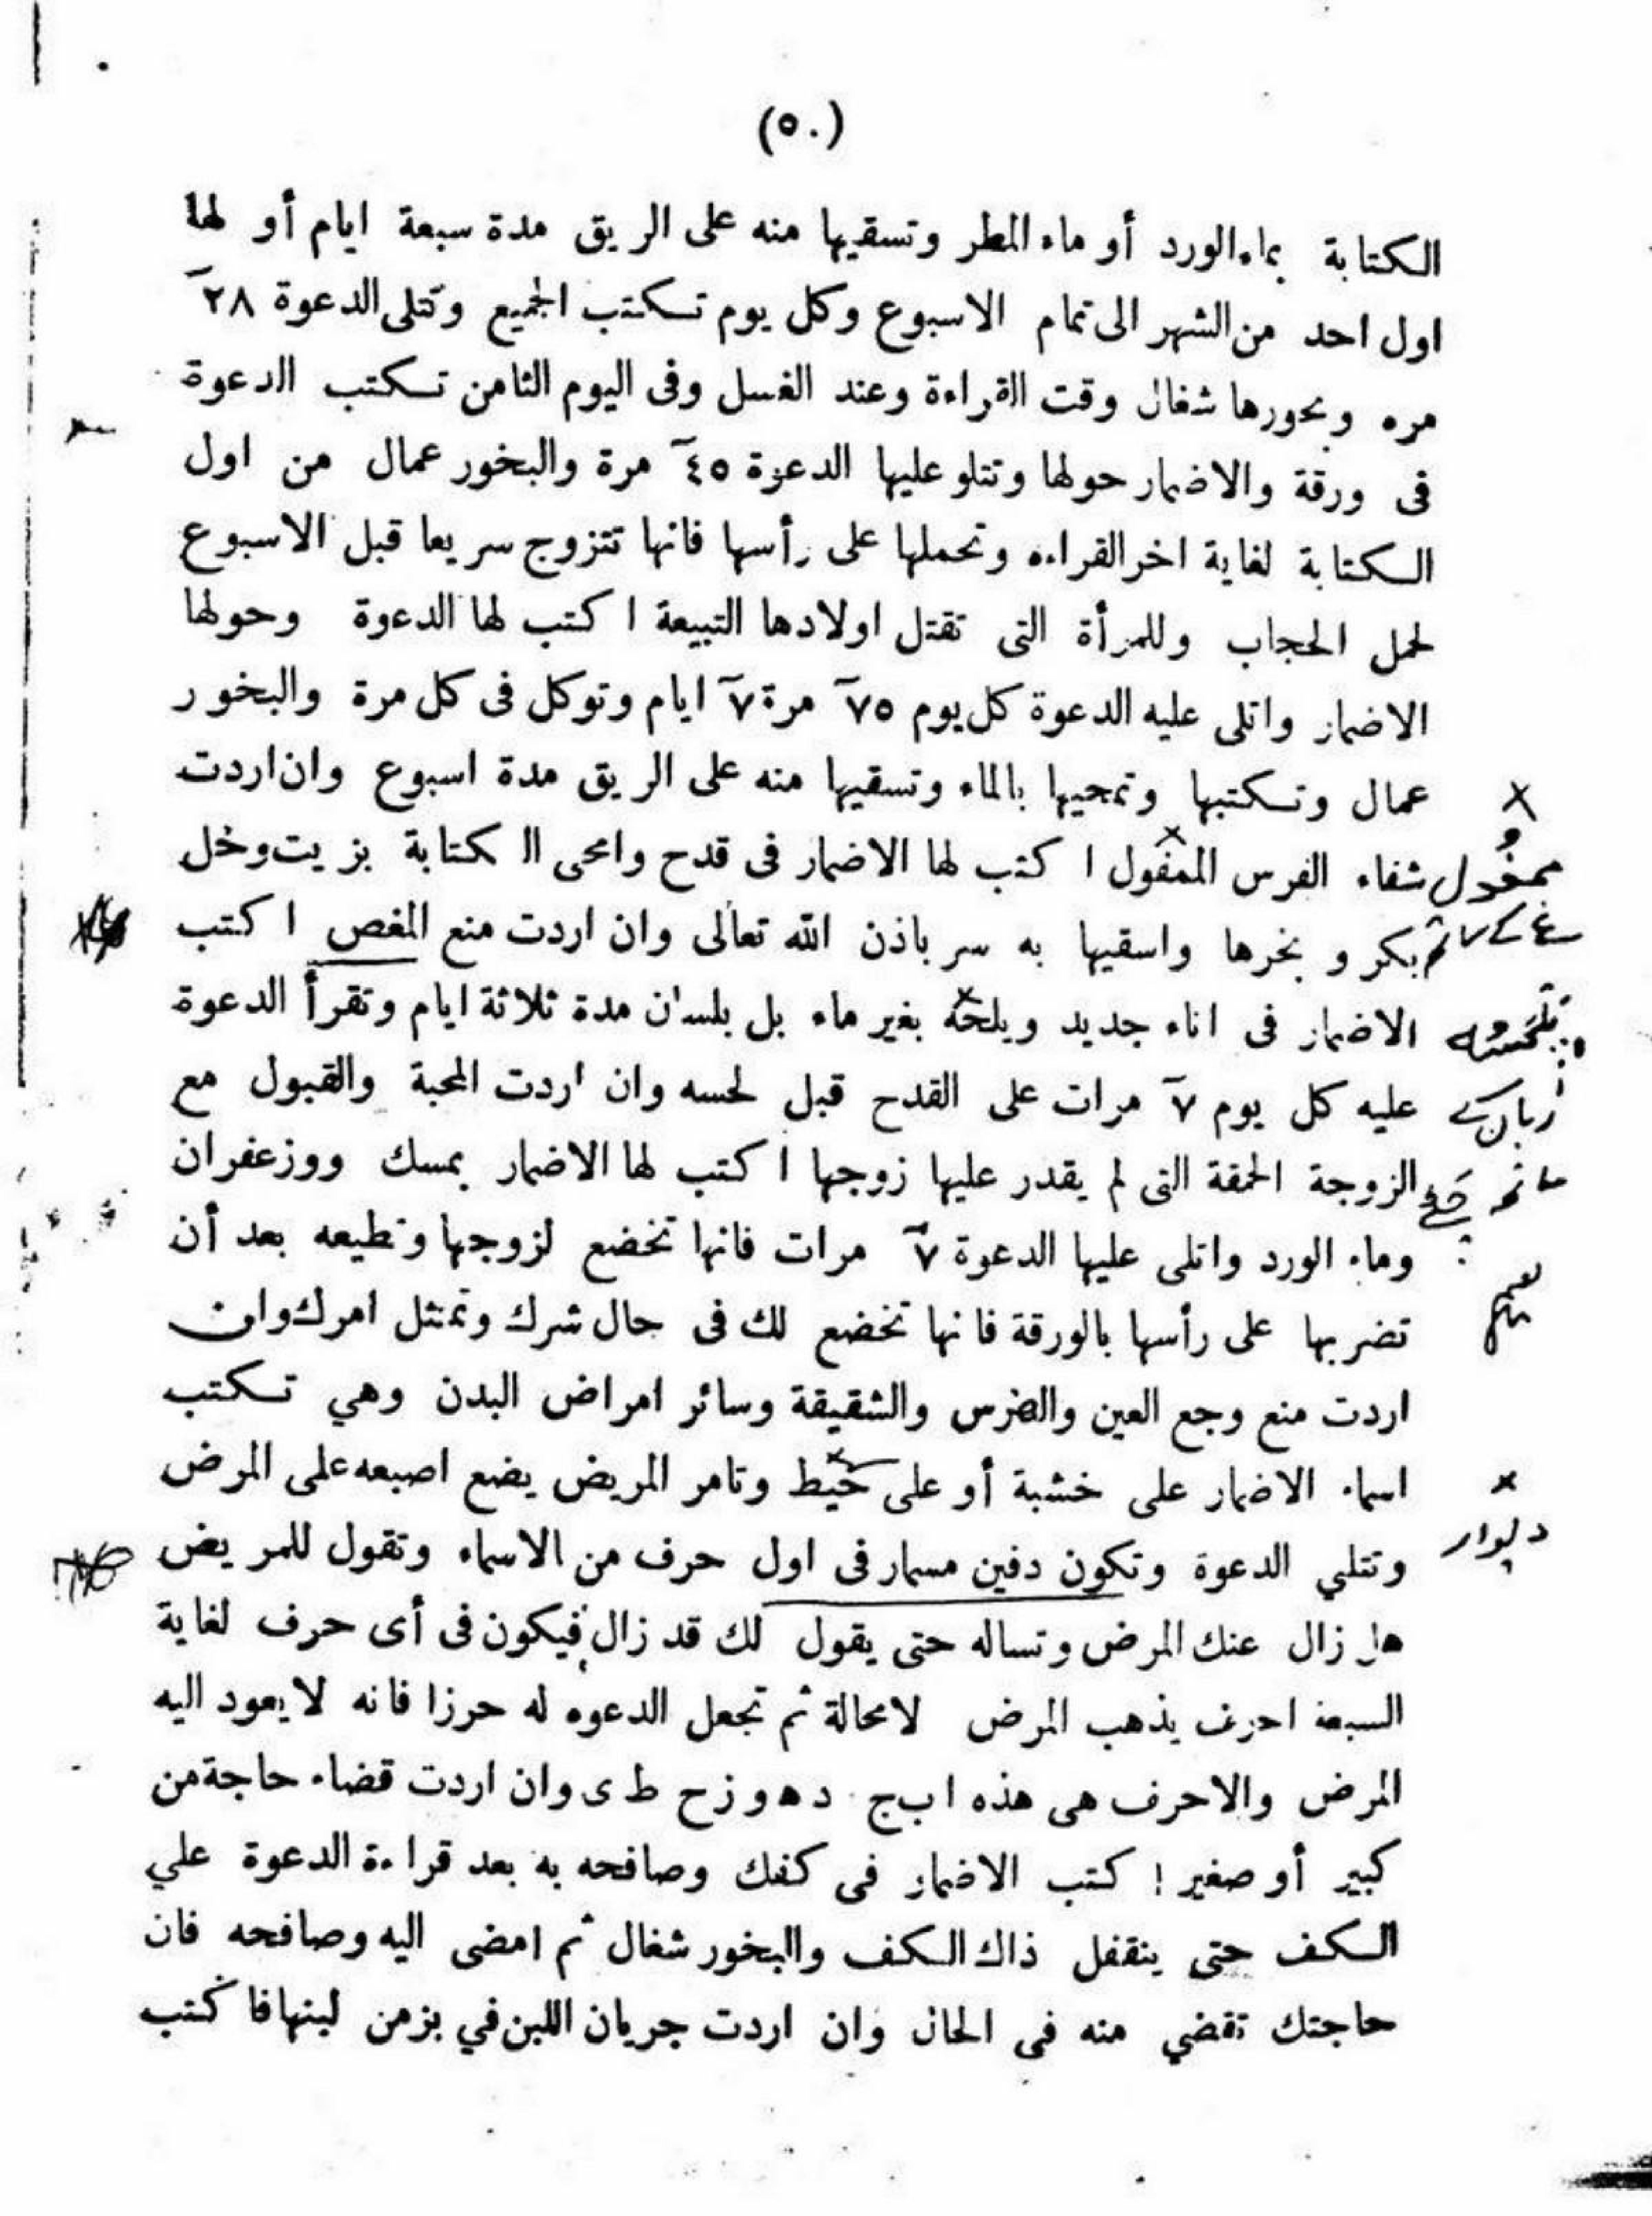 (٥٠)
الكتابة بماء الورد أو ماء المطر وتسقيها منه على الريق مدة سبعة ايام أو لها
اول احد من الشهر الى تمام الاسبوع وكل يوم تكتب الجميع وتتلى الدعوة ٢٨
مره وبخورها شغال وقت القراءة وعند الغسل وفى اليوم الثامن تكتب الدعوة
فى ورقة والاضمار حولها وتتلو عليها الدعوة ٤٥ مرة والبخور عمال من اول
الكتابة لغاية اخر القراءه وتحملها على رأسها فانها تتزوج سريعا قبل الاسبوع
لحمل الحجاب وللمرأة التى تقتل اولادها التبيعة اكتب لها الدعوة وحولها
الاضمار واتلى عليه الدعوة كل يوم ٧٥ مرة ٧ ايام وتوكل فى كل مرة والبخور
عمال وتكتبها وتمحيها بالماء وتسقيها منه على الريق مدة اسبوع وان اردت
شفاء الفرس الممغول اكتب لها الاضمار فى قدح وامحى الكتابة بزيت وخل
بكر وبخرها واسقيها به سر باذن الله تعالى وان اردت منع المغص اكتب
الاضمار فى اناء جديد ويلحسه بغير ماء بل بلسان مدة ثلاثة ايام وتقرأ الدعوة
زبان
عليه كل يوم ٧ مرات على القدح قبل لحسه وان اردت المحبة والقبول مع
الزوجة الحمقة التى لم يقدر عليها زوجها اكتب لها الاضمار بمسك ووزعفران
وماء الورد واتلى عليها الدعوة ٧ مرات فانها تخضع لزوجها وتطيعه بعد أن
تضربها على رأسها بالورقة فانها تخضع لك فى حال شرك وتمتثل امرك وان
اردت منع وجع العين والضرس والشقيقة وسائر امراض البدن وهي تكتب
اسماء الاضمار على خشبة أو على حيط وتامر المريض يضع اصبعه على المرض
ديوار
وتتلي الدعوة وتكون دفين مسمار فى اول حرف من الاسماء وتقول للمريض
هل زال عنك المرض وتساله حتى يقول لك قد زال فيكون فى أى حرف لغاية
السبعة احرف يذهب المرض لامحالة ثم تجعل الدعوه له حرزا فانه لايعود اليه
المرض والاحرف هى هذه ا ب ج د ه و ز ح ط ى وان اردت قضاء حاجة من
كبير أو صغير اكتب الاضمار فى كفك وصافحه به بعد قراءة الدعوة علي
الكف حتى ينقفل ذاك الكف والبخور شغال ثم امضى اليه وصافحه فان
حاجتك تقضي منه فى الحال وان اردت جريان اللبن في بزمن لبنها فاكتب